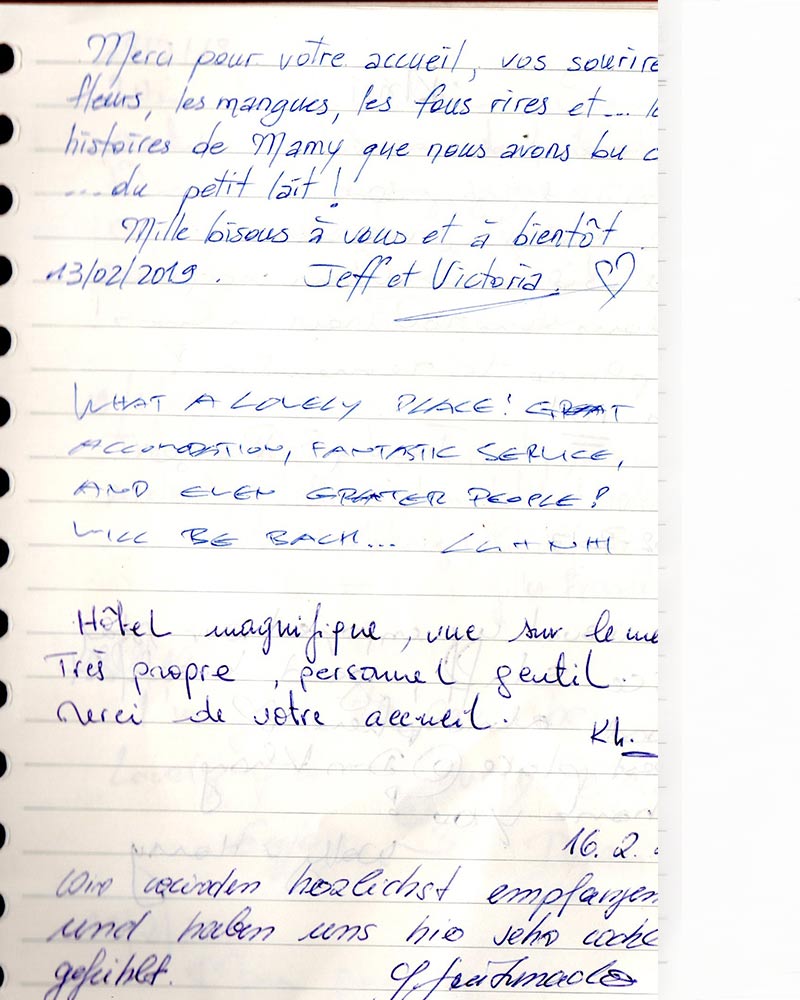 Merci pour votre accueil, vos sourire
fleurs, les mangues, les fous rires et... l
histoires de Mamy que nous avons bu c
...du petit lait !
Mille bisous à vous et à bientôt.
13/02/2019. Jeff et Victoria.
WHAT A LOVELY PLACE! GREAT
ACCOMODATION, FANTASTIC SERVICE,
AND EVEN GREATER PEOPLE!
WILL BE BACK...
Hôtel magnifique, vue sur le me
Très propre, personnel gentil.
Merci de votre accueil.
Kh.
16. 2.
Wir wurden herzlichst empfangen
und haben uns hier sehr wohl
gefühlt.